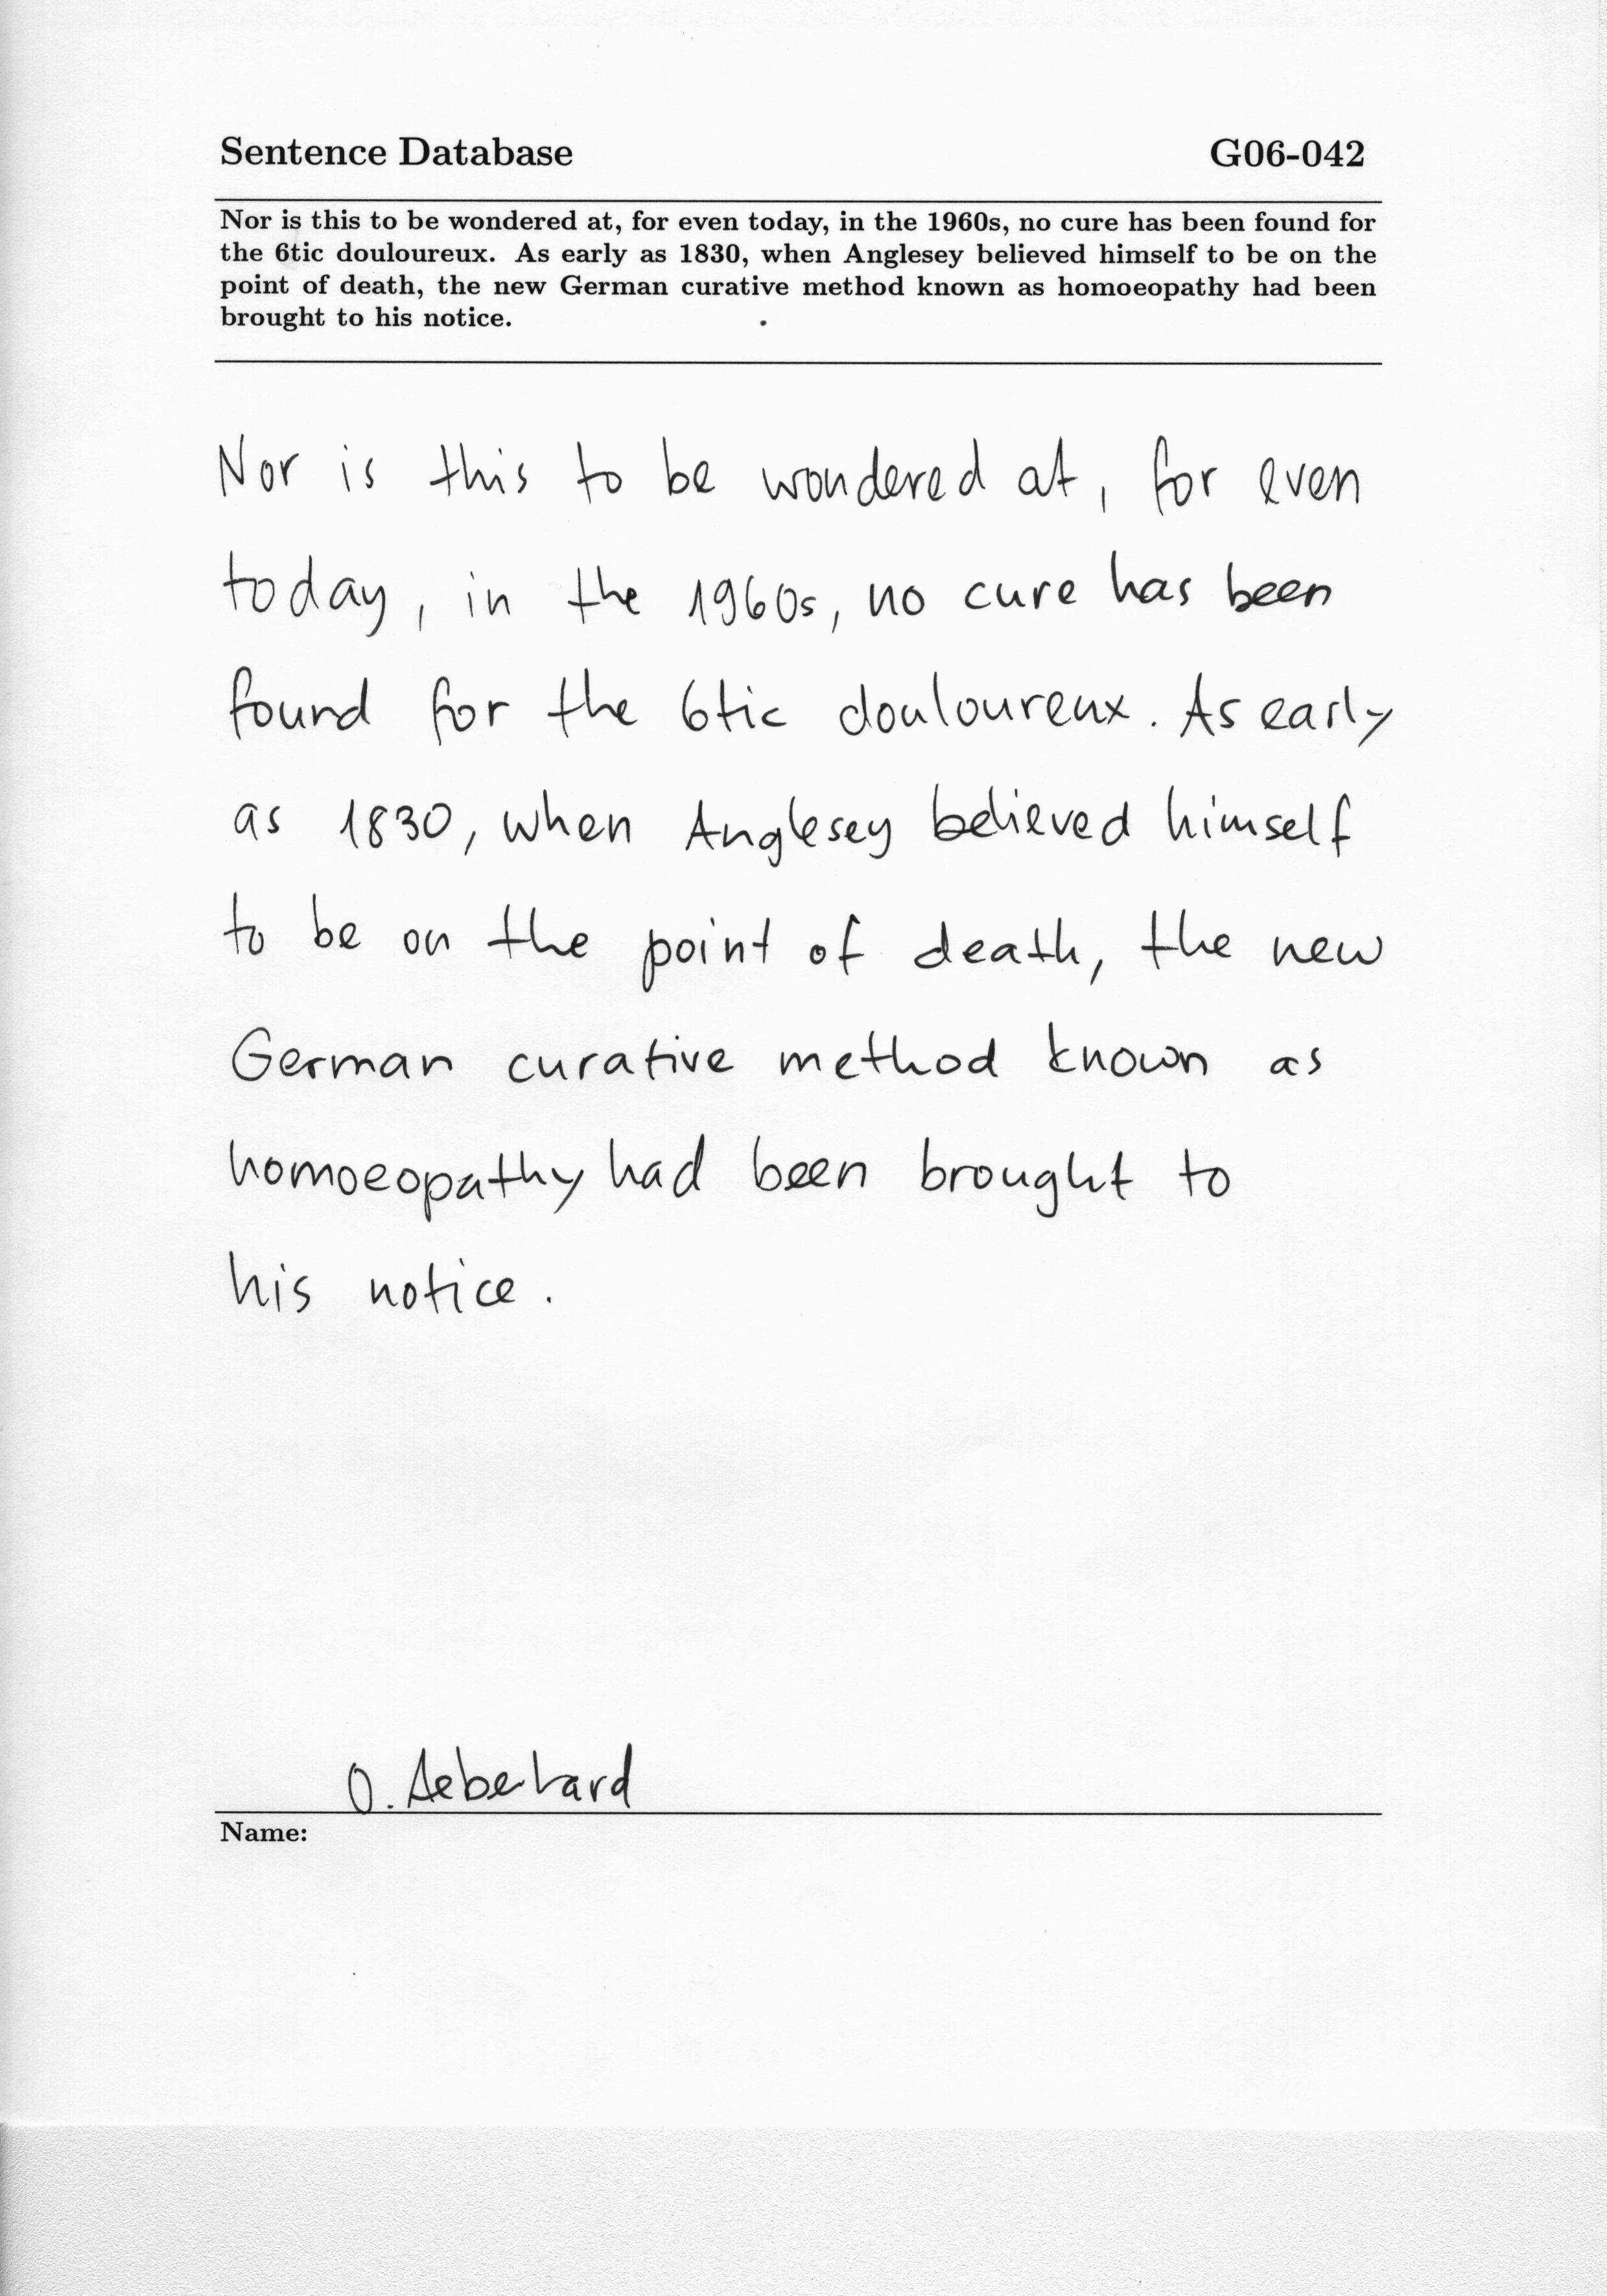 Sentence Database G06-042
Nor is this to be wondered at, for even today, in the 1960s, no cure has been found for
the 6tic douloureux. As early as 1830, when Anglesey believed himself to be on the
point of death, the new German curative method known as homoeopathy had been
brought to his notice.
Nor is this to be wondered at, for even
today, in the 1960s, no cure has been
found for the 6tic douloureux. As early
as 1830, when Anglesey believed himself
to be on the point of death, the new
German curative method known as
homoeopathy had been brought to
his notice.
O. Aeberhard
Name: